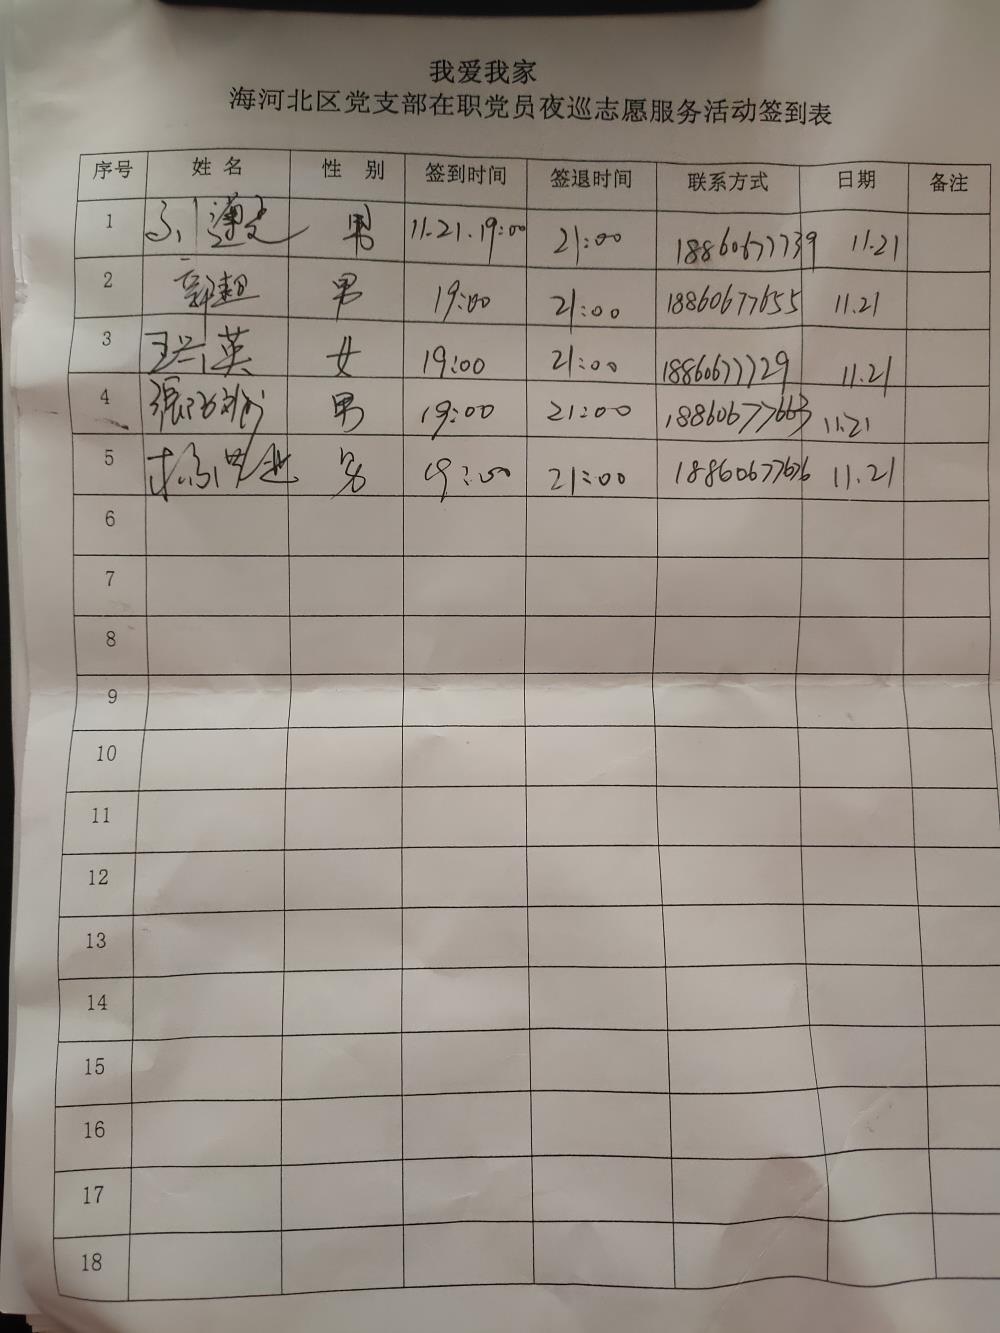 我爱我家
海河北区党支部在职党员夜巡志愿服务活动签到表
序号 姓名 性别 签到时间 签退时间 联系方式 日期 备注
1 男 11.21.19:00 21:00 18860677739 11.21
2 郭超 男 19:00 21:00 18860677655 11.21
3 王兴英 女 19:00 21:00 18860677729 11.21
4 男 19:00 21:00 18860677663 11.21
5 男 19:00 21:00 18860677676 11.21
6
7
8
9
10
11
12
13
14
15
16
17
18